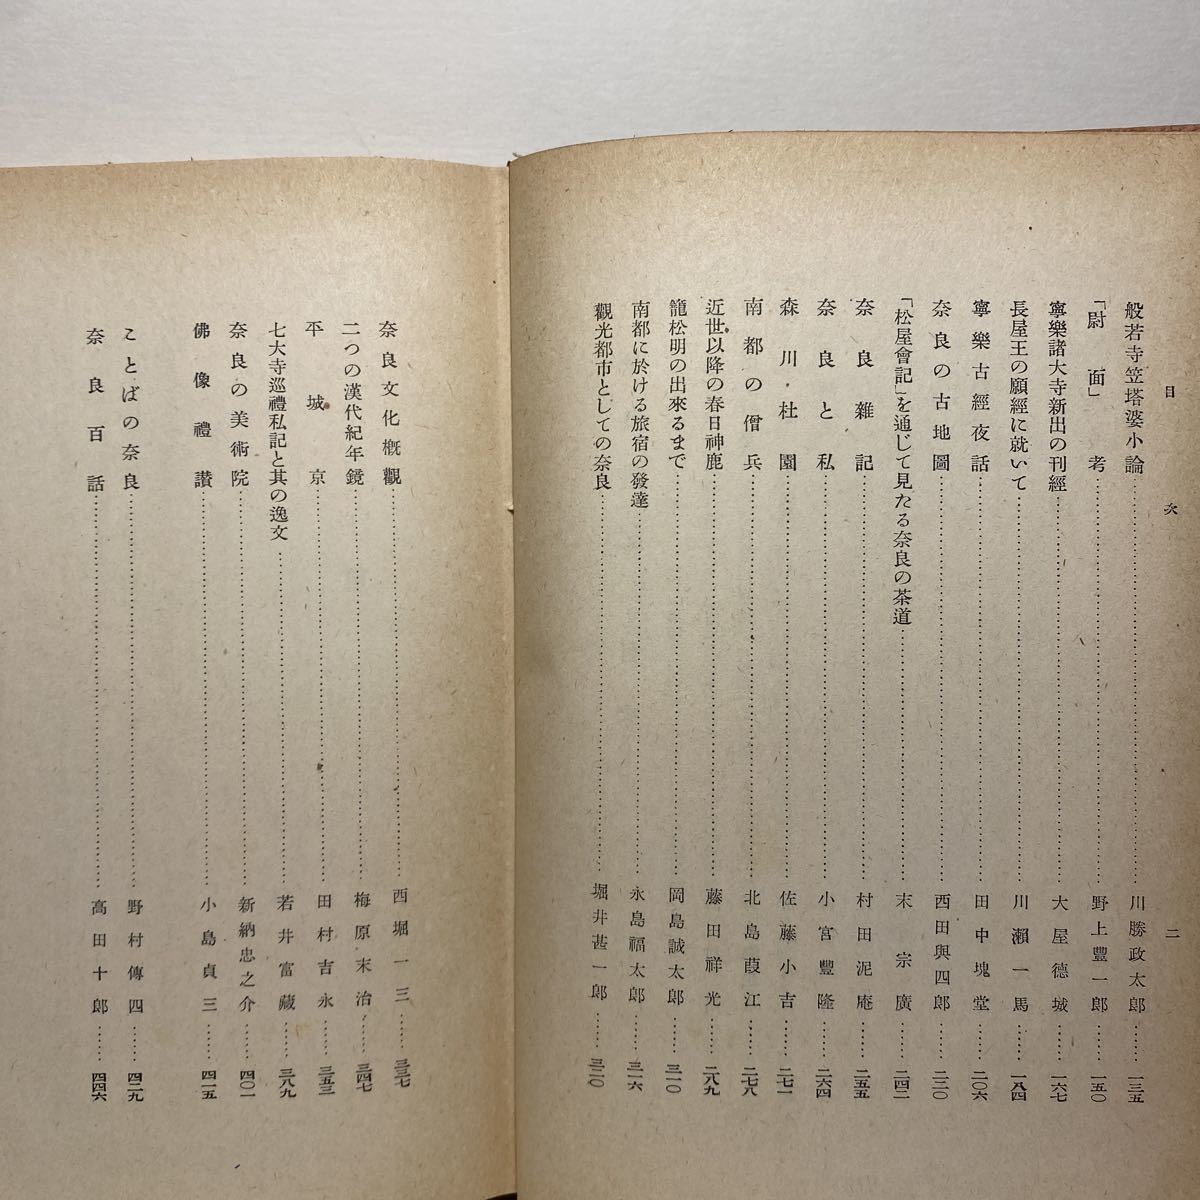 目次
二
般若寺笠塔婆小論……川勝政太郎……一三五
「尉面」考……野上豐一郎……一五〇
寧樂諸大寺新出の刊經……大屋德城……一六七
長屋王の願經に就いて……川瀨一馬……一八四
寧樂古經夜話……田中塊堂……二〇六
奈良の古地圖……西田與四郎……二三〇
「松屋會記」を通じて見たる奈良の茶道……末宗廣……二四二
奈良雜記……村田泥庵……二五五
奈良と私……小宮豐隆……二六四
森川杜園……佐藤小吉……二七一
南都の僧兵……北島葭江……二七八
近世以降の春日神鹿……藤田祥光……二八九
籠松明の出來るまで……岡島誠太郎……三一〇
南都に於ける旅宿の發達……永島福太郎……三一六
觀光都市としての奈良……堀井甚一郎……三二〇
奈良文化槪觀……西堀一三……三三七
二つの漢代紀年鏡……梅原末治……三四七
平城京……田村吉永……三五三
七大寺巡禮私記と其の逸文……若井富藏……三八九
奈良の美術院……新納忠之介……四〇一
佛像禮讃……小島貞三……四一五
ことばの奈良……野村傳四……四二九
奈良百話……高田十郞……四四六